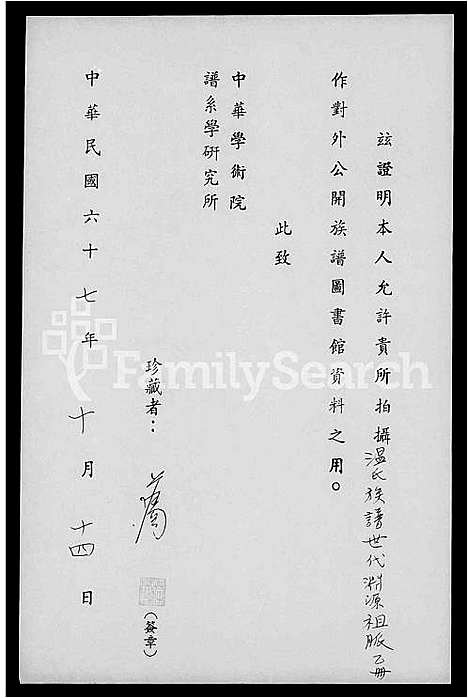 玆證明本人允許貴所拍攝温氏族譜世代渊源祖脈乙冊
作對外公開族譜圖書館資料之用。
此致
中華學術院
譜系學研究所
珍藏者：
（簽章）
中華民國六十七年十月十四日
FamilySearch